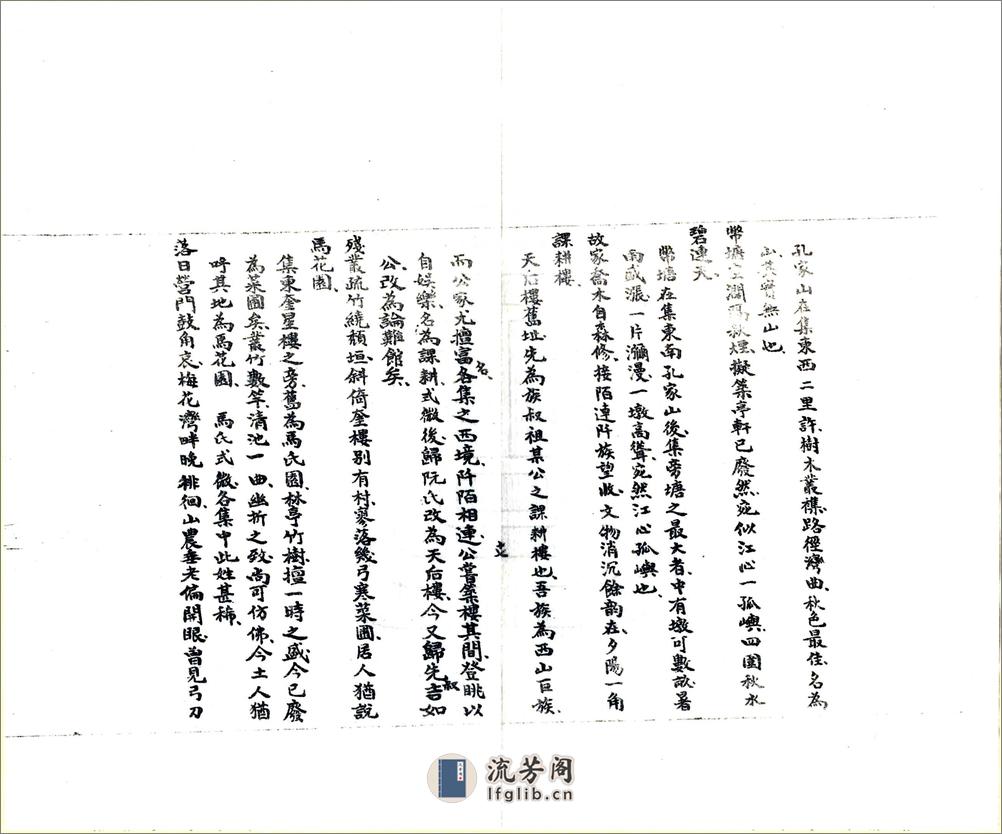 孔家山在集東西二里許樹木叢襍路徑灣曲秋色最佳名為
山其實無山也
幣塘空濶鴻秋烟擬築亭軒已廢然宛似江心一孤嶼四圍秋水
碧連天
幣塘在集東南孔家山後集旁塘之最大者中有墩可數畝暑
雨盛漲一片瀰漫一墩高聳宛然江心孤嶼也
故家喬木自森修接陌連阡族望收文物消沉餘韵在夕陽一角
課耕樓
天后樓舊址先為族叔祖某公之課耕樓也吾族為西山巨族
而公家尤擅富名各集之西境阡陌相連公嘗築樓其間登眺以
自娱樂名為課耕式微後歸阮氏改為天后樓今又歸先叔吉如
公改為論難館矣
殘叢疏竹繞頹垣斜倚奎樓别有村寥落幾弓寒菜圃居人猶說
馬花園
集東奎星樓之旁舊為馬氏園林亭竹樹擅一時之盛今已廢
為菜圃矣叢竹數竿清池一曲幽折之致尚可仿佛今土人猶
呼其地為馬花園 馬氏式微各集中此姓甚稀
落日營門鼓角哀梅花灣畔晚徘徊山農垂老偏開眼曾見弓刀
流芳阁
lfglib.cn